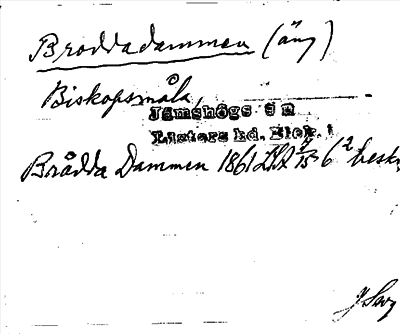 Broddadammen (äng)
Biskopsmåla,
Jämshögs sn
Listers hd. Blek.
Brådda Dammen 1861 LSA 15 6² beskr